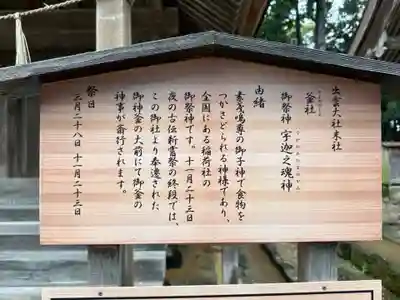 出雲大社末社
釜社
御祭神 宇迦之魂神
由緒
素戔嗚尊の御子神で食物を
つかさどられる神様であり、
全国にある稲荷社の
御祭神です。十一月二十三日
夜の古伝新嘗祭の終段では、
この御社より奉遷された
御神釜の大前にて御釜の
神事が斎行されます。
祭日
三月二十八日 十一月二十三日